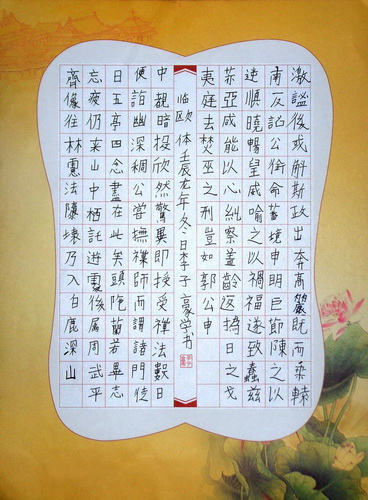 激謐後或解斯政出奔高麗既而桑轅
南反詔公銜命蕃境申明巨節陳之以
逆順曉暢皇威喻之以禍福遂致蠢茲
亞咸能以心糾察蓋齡返擣日之戈
夷庭去焚巫之刑豈如郭公申
临欧体壬辰龙年冬日李子豪学书
中覩暗投欣然驚異即授受禪法數日
便詣幽深稠公嘗撫禪師而謂諸門徒
日五亭四念盡在此矣頭陁蘭若畢志
忘疲仍来山中栖託遊雲後属周武平
齊像往林慮法隳壊乃入白鹿深山